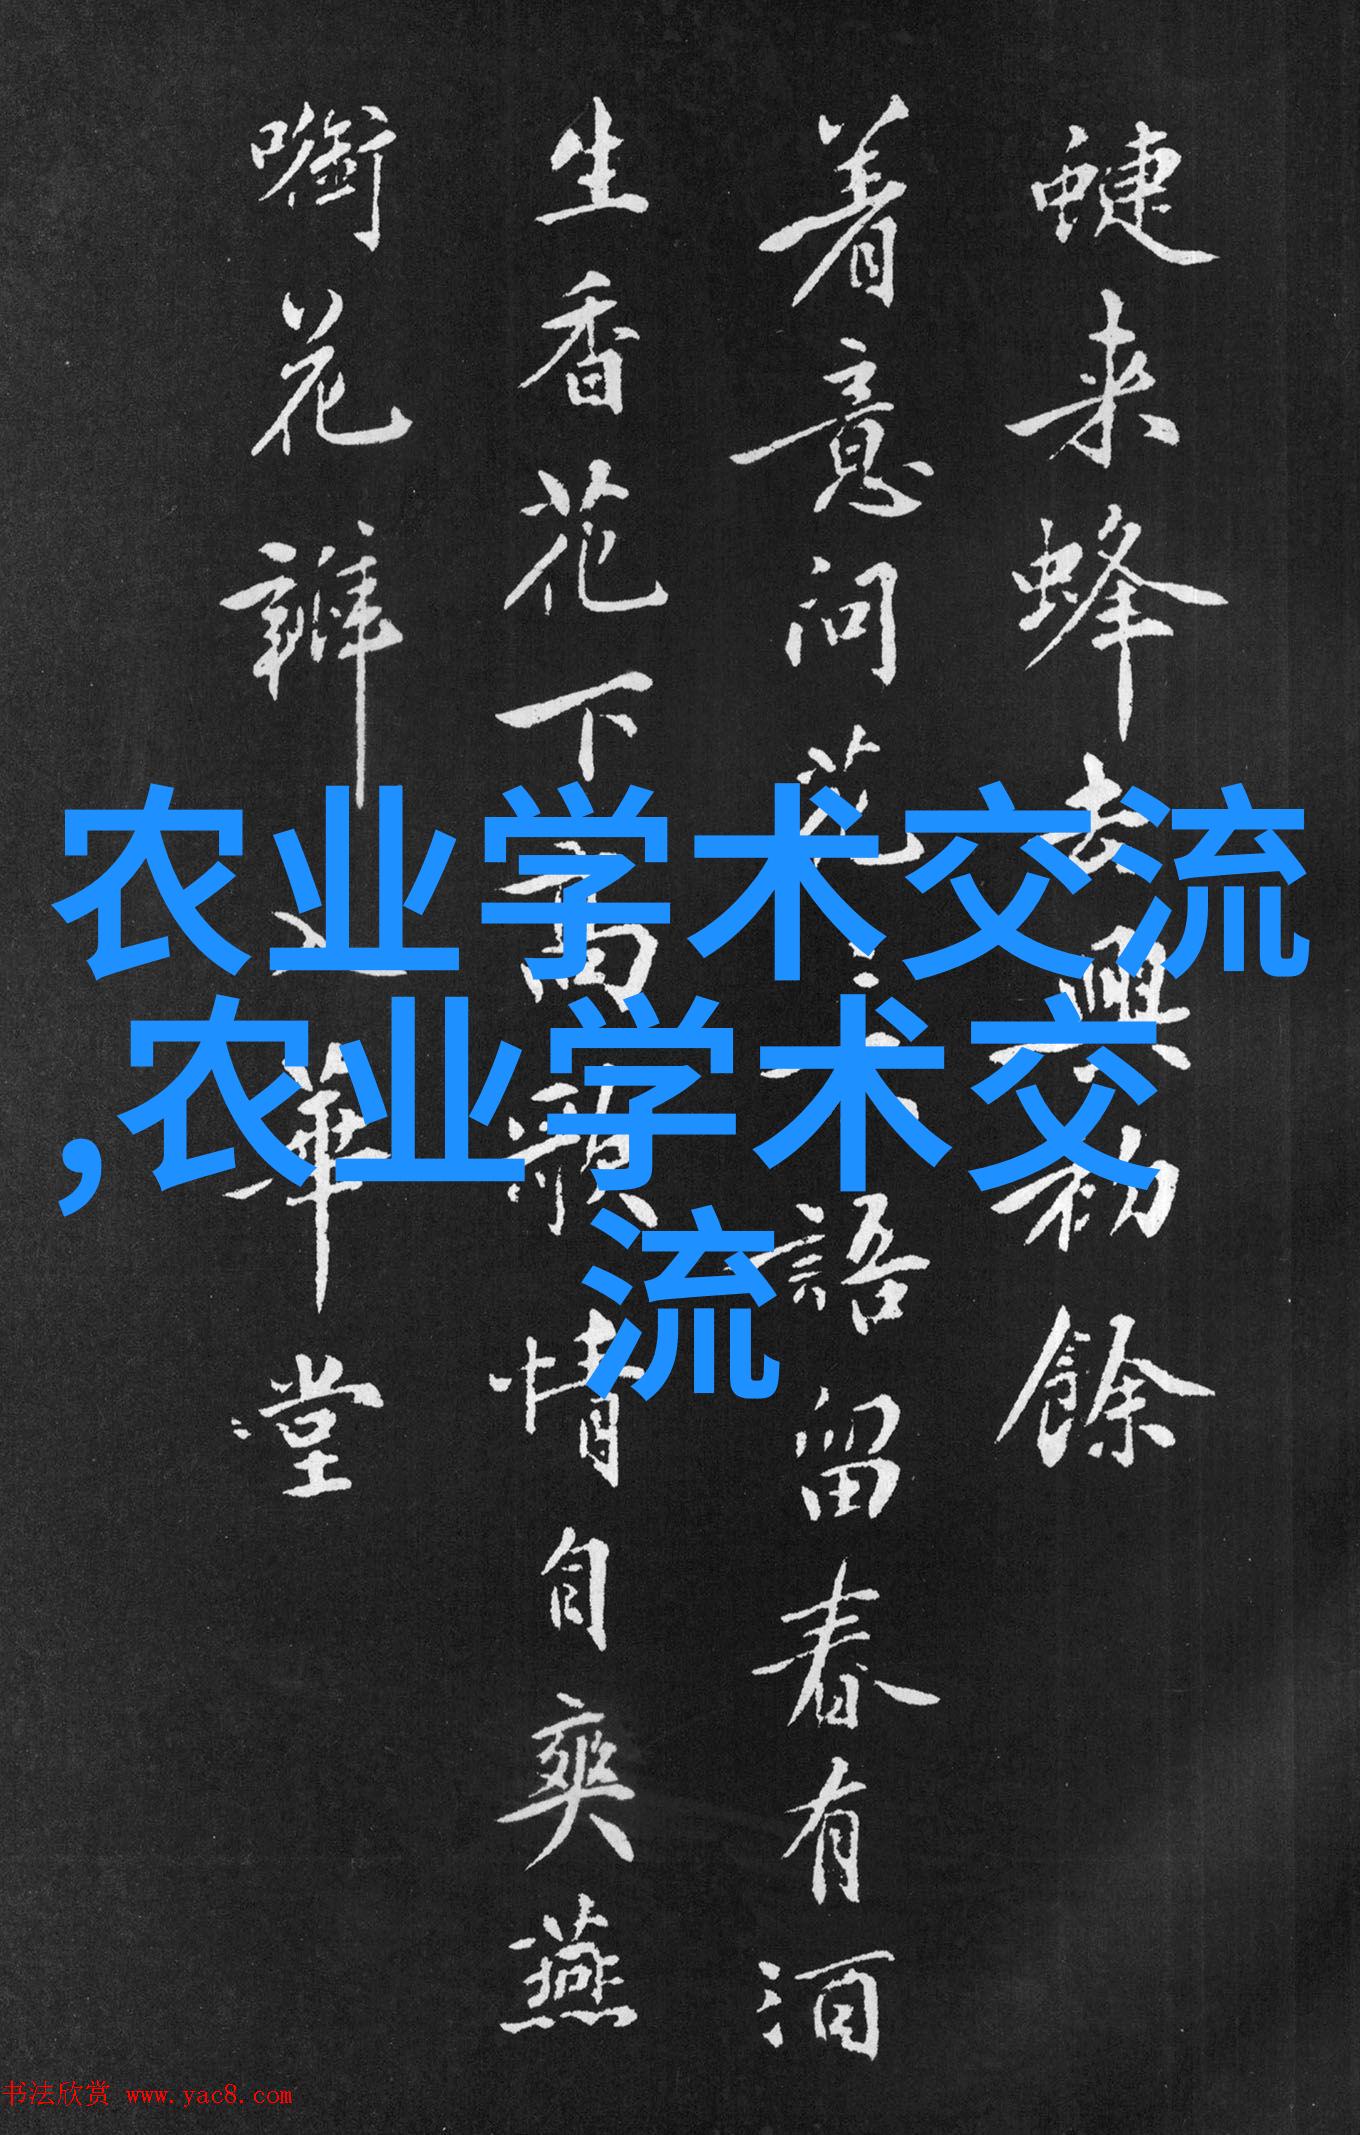 蜨来蜂去興初餘
着意问花語留春有酒
生香花下高歌情自爽燕
花瓣華堂
农业学术交流
,农业学术交
流
书法欣赏 www.yac8.com